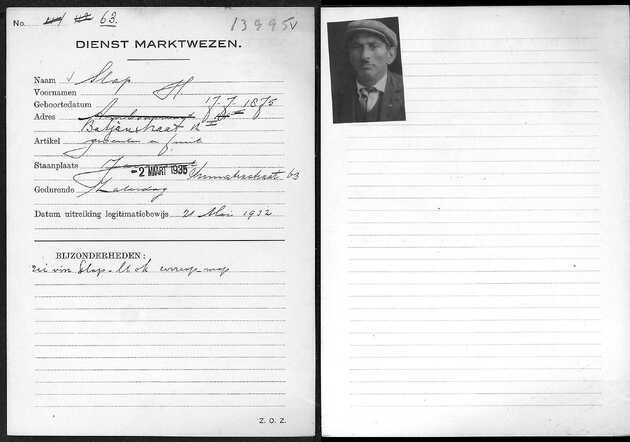 No. 63.
13995v
DIENST MARKTWEZEN.
Naam Slap
Voornamen H
Geboortedatum 17.7.1875
Adres
Batjanstraat
Artikel groenten en fruit
Staanplaats
-2 MAART 1935 Sumatrastraat 63
Gedurende Zaterdag
Datum uitreiking legitimatiebewijs 21 Mei 1932
BIJZONDERHEDEN:
Slap
Z. O. Z.